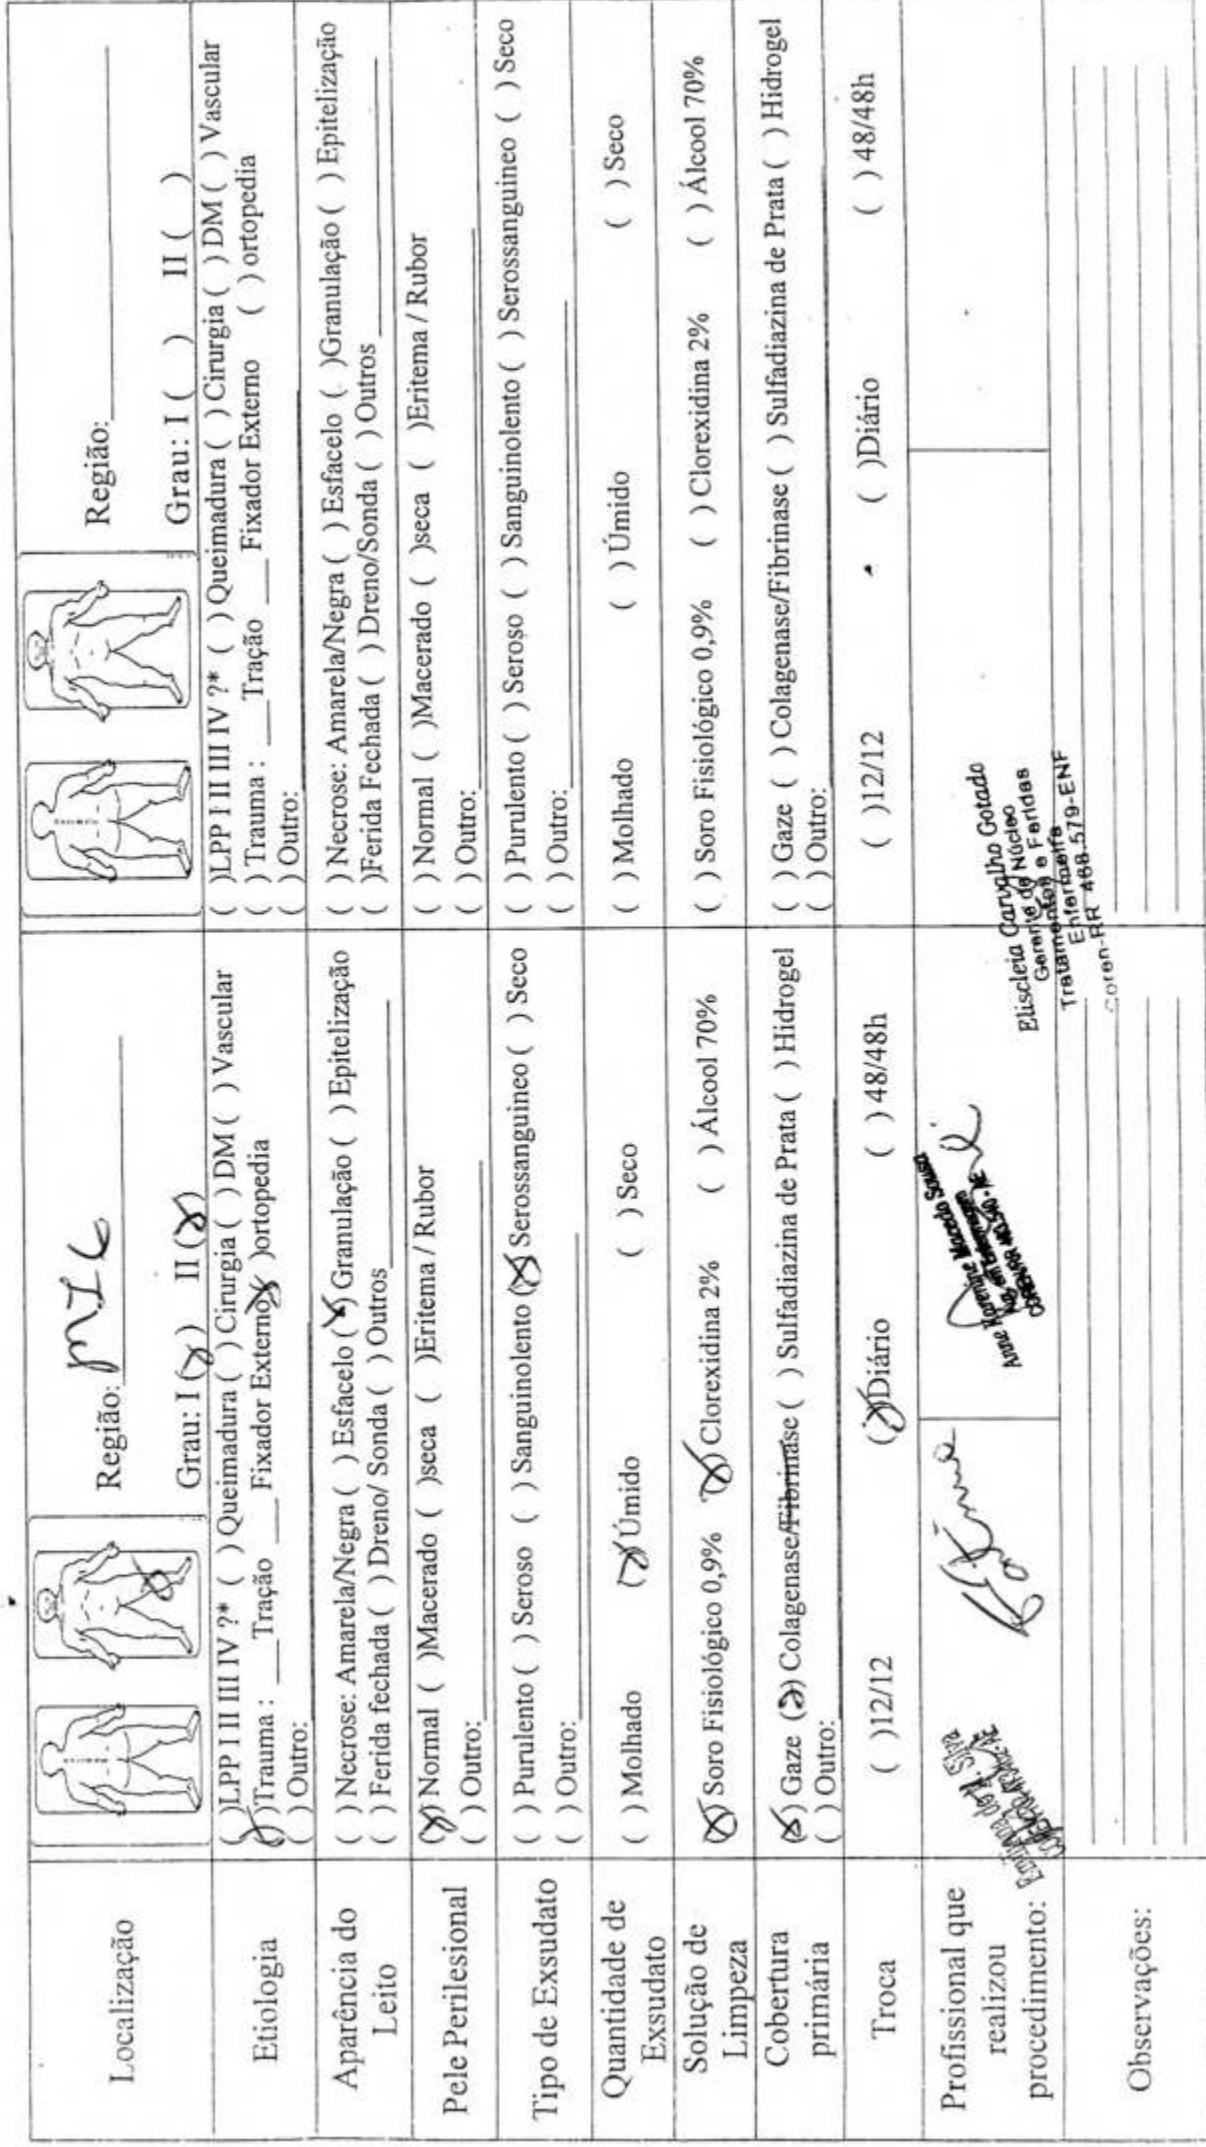 Localização
Região: MIE
Grau: I (x) II (x)
Região:
Grau: I ( ) II ( )
Etiologia
( )LPP I II III IV ?* ( ) Queimadura ( ) Cirurgia ( ) DM ( ) Vascular
(x)Trauma : ___Tração ___Fixador Externo (x)ortopedia
( ) Outro:
( )LPP I II III IV ?* ( ) Queimadura ( ) Cirurgia ( ) DM ( ) Vascular
( ) Trauma : ___Tração ___Fixador Externo ( ) ortopedia
( ) Outro:
Aparência do
Leito
( ) Necrose: Amarela/Negra ( ) Esfacelo (x) Granulação ( ) Epitelização
( ) Ferida fechada ( ) Dreno/ Sonda ( ) Outros
( ) Necrose: Amarela/Negra ( ) Esfacelo ( )Granulação ( ) Epitelização
( )Ferida Fechada ( ) Dreno/Sonda ( ) Outros
Pele Perilesional
(x) Normal ( )Macerado ( )seca ( )Eritema / Rubor
( ) Outro:
( ) Normal ( )Macerado ( )seca ( )Eritema / Rubor
( ) Outro:
Tipo de Exsudato
( ) Purulento ( ) Seroso ( ) Sanguinolento (x) Serossanguineo ( ) Seco
( ) Outro:
( ) Purulento ( ) Seroso ( ) Sanguinolento ( ) Serossanguineo ( ) Seco
( ) Outro:
Quantidade de
Exsudato
( ) Molhado (x) Úmido ( ) Seco
( ) Molhado ( ) Úmido ( ) Seco
Solução de
Limpeza
(x) Soro Fisiológico 0,9% (x) Clorexidina 2% ( ) Álcool 70%
( ) Soro Fisiológico 0,9% ( ) Clorexidina 2% ( ) Álcool 70%
Cobertura
primária
(x) Gaze (x) Colagenase/Fibrinase ( ) Sulfadiazina de Prata ( ) Hidrogel
( ) Outro:
( ) Gaze ( ) Colagenase/Fibrinase ( ) Sulfadiazina de Prata ( ) Hidrogel
( ) Outro:
Troca
( )12/12 (x)Diário ( ) 48/48h
( )12/12 ( )Diário ( ) 48/48h
Profissional que
realizou
procedimento:
Silva
Anne Karenine Macedo Sousa
Eliscleia Carvalho Gotado
Gerente de Núcleo
Tratamentos e Feridas
Enfermeira
Coren-RR 468.579-ENF
Observações: